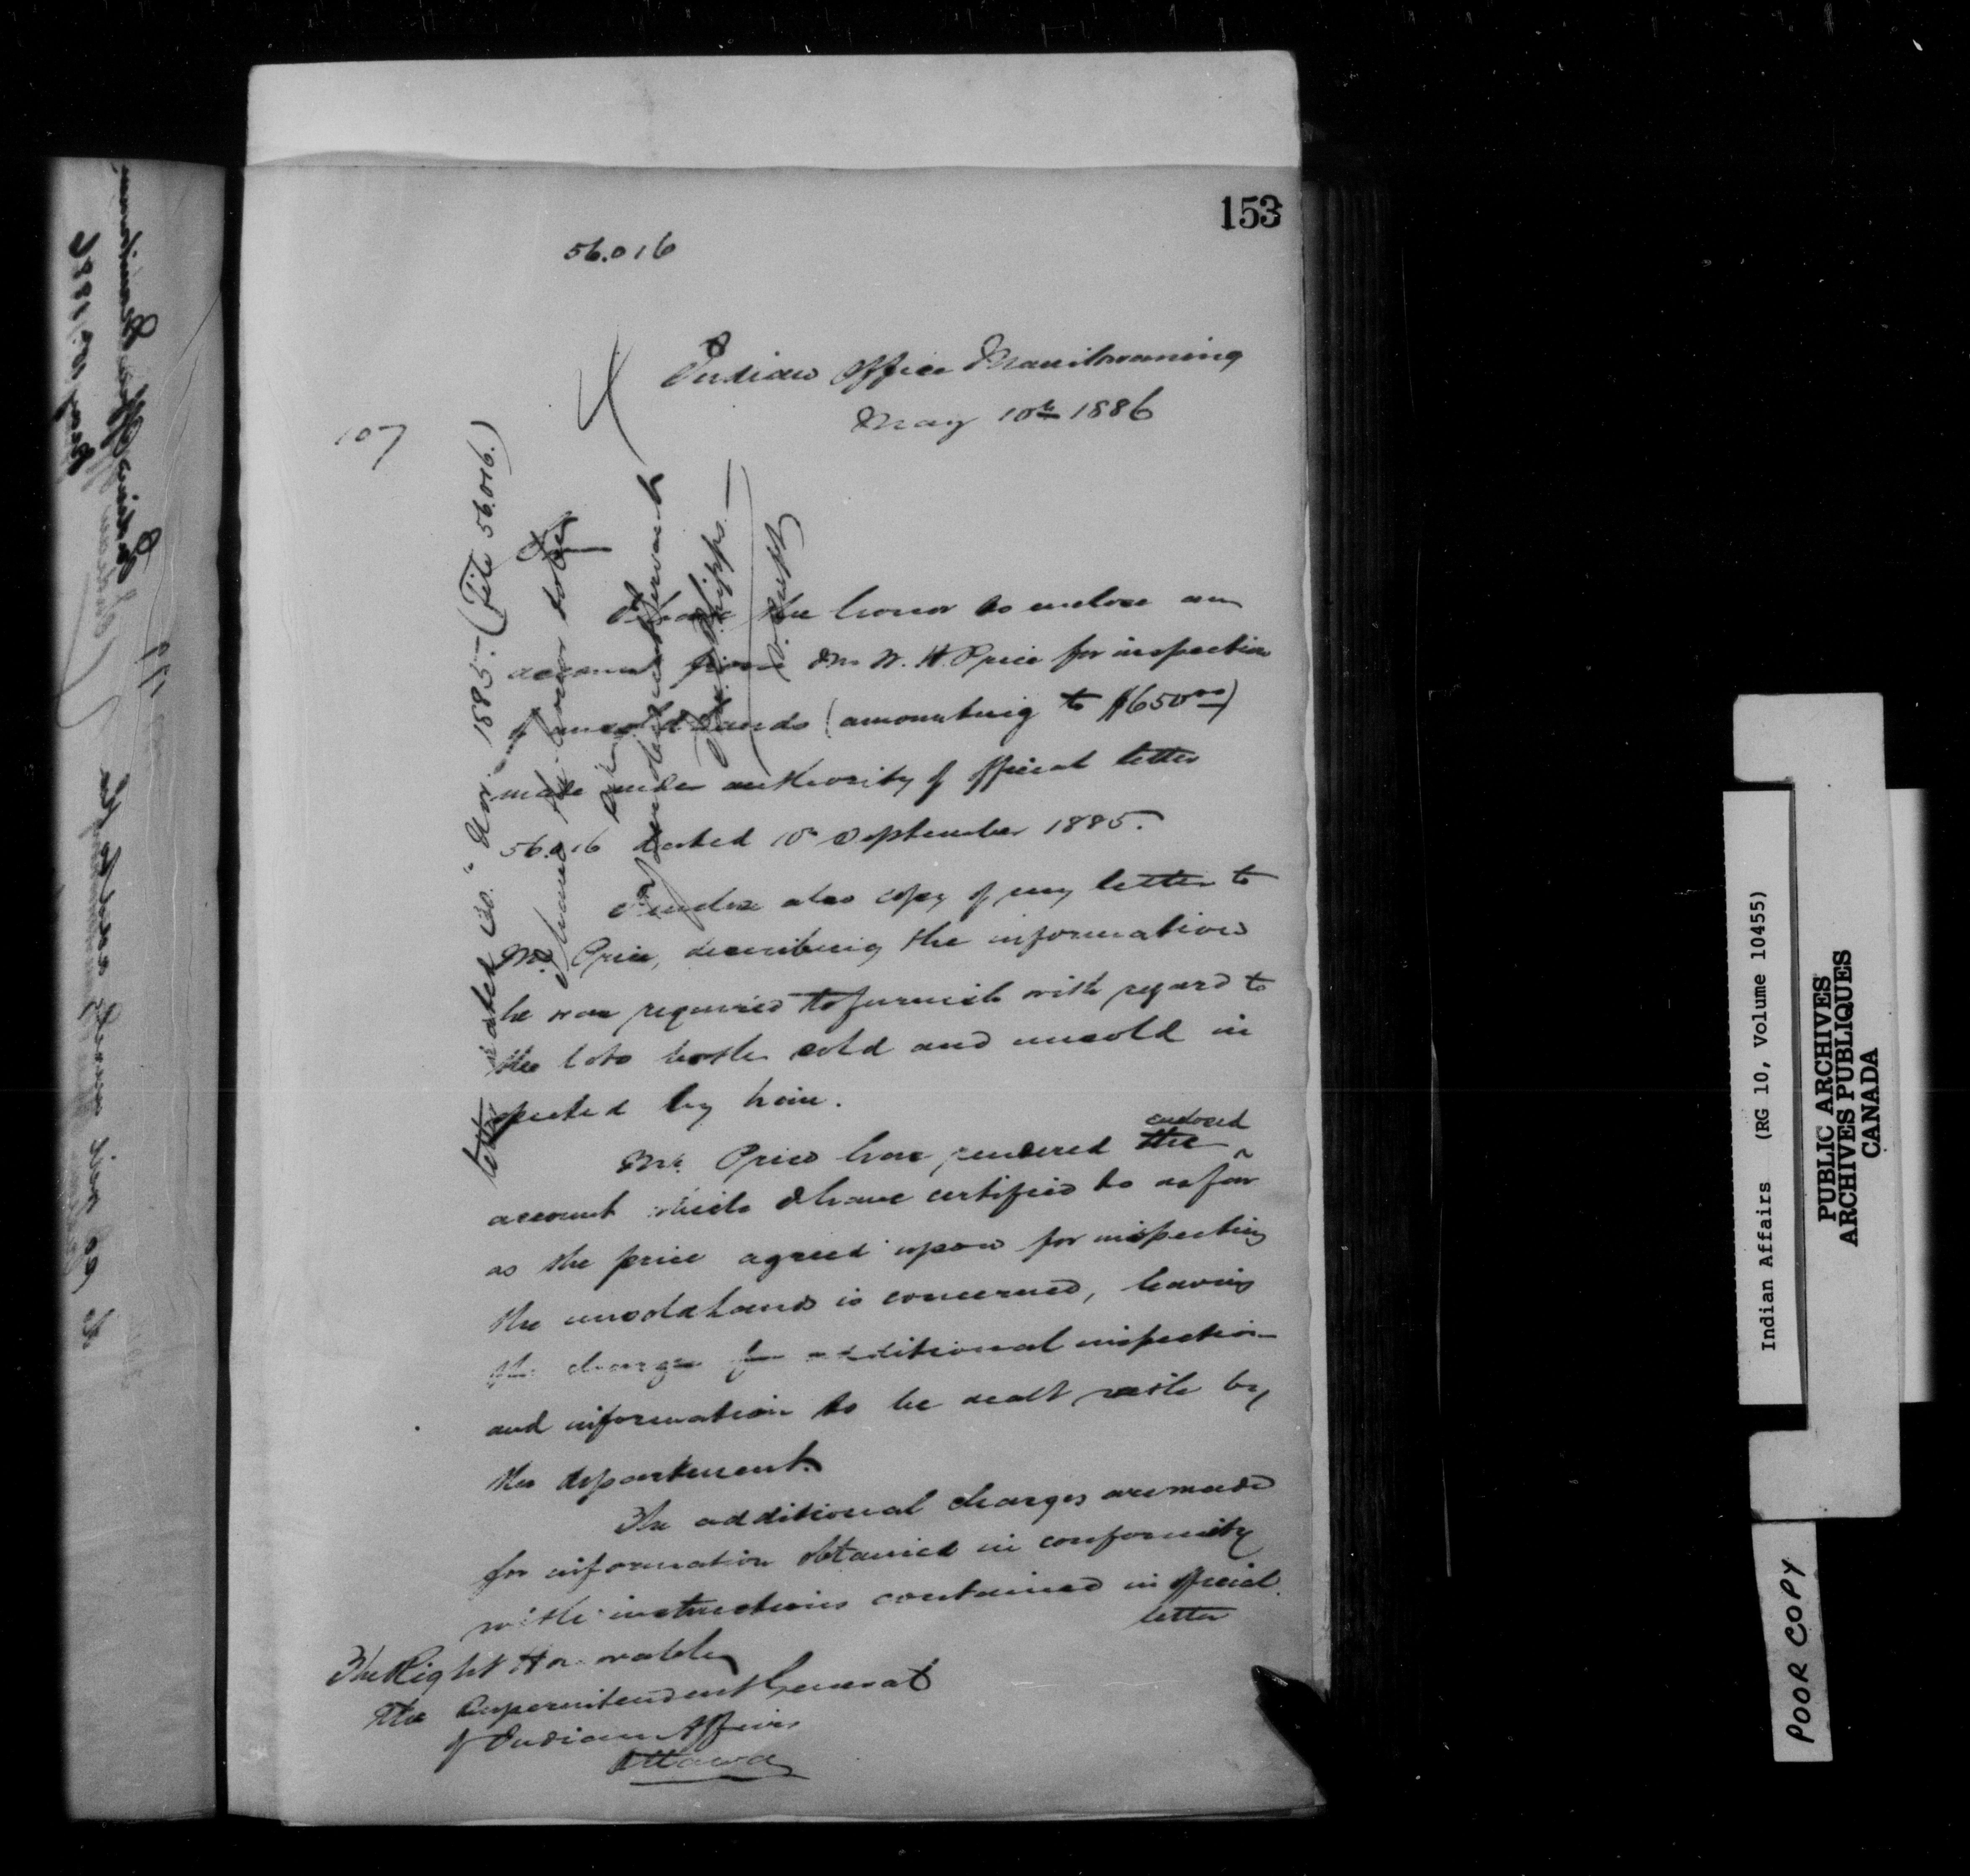 153
56.016
Indian Office Manitowaning
May 10th 1886
107
Sir
I have the honor to enclose an
account from Mr W. H. Price for inspection
of unsold lands (amounting to $650.00)
made under authority of official letter
56.016 dated 10 September 1885.
I enclose also copy of my letter to
Mr Price, describing the information
he was required to furnish with regard to
the lots both sold and unsold in
spected by him.
Mr. Price has rendered the enclosed
account which I have certified to as far
as the price agreed upon for inspecting
the unsold lands is concerned, leaving
the charge for additional inspection
and information to be dealt with by
the department.
The additional charges are made
for information obtained in conformity
with instructions contained in official
letter
The Right Honorable
The Superintendent General
of Indian Affairs
Ottawa
letter dated 30" Nov. 1885.- (File 56.016.)
I have the honor to be
Sir
Your obedient servant
Jas. C. Phipps.
V. Supt
Indian Affairs (RG 10, Volume 10455)
PUBLIC ARCHIVES
ARCHIVES PUBLIQUES
CANADA
POOR COPY